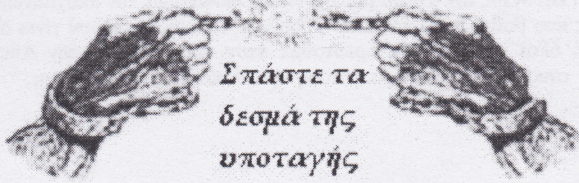 Σπάστε τα
δεσμά της
υποταγής